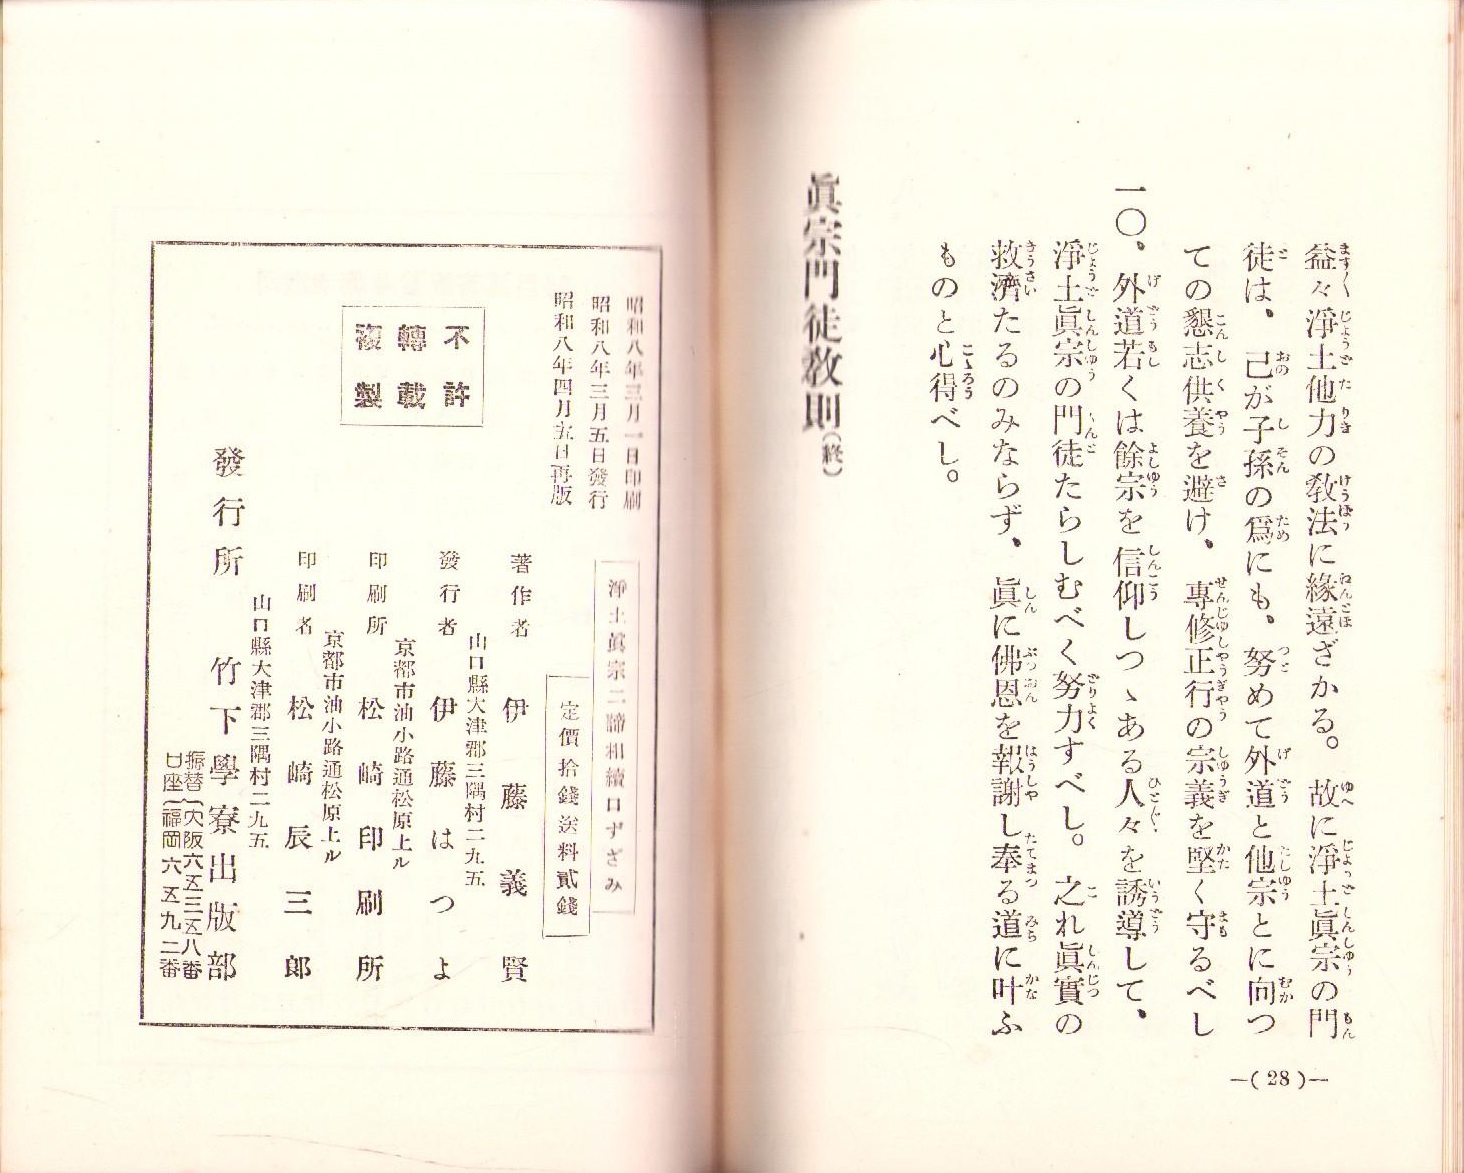 益々淨土他力の敎法に緣遠ざかる。故に淨土眞宗の門
徒は、己が子孫の爲にも、努めて外道と他宗とに向つ
ての懇志供養を避け、專修正行の宗義を堅く守るべし
一〇、外道若くは餘宗を信仰しつゝある人々を誘導して、
淨土眞宗の門徒たらしむべく努力すべし。之れ眞實の
救濟たるのみならず、眞に佛恩を報謝し奉る道に叶ふ
ものと心得べし。
眞宗門徒敎則(終)
―( 28 )―
昭和八年三月一日印刷
昭和八年三月五日發行
昭和八年四月五日再版
不許
轉載
複製
淨土眞宗二諦相續口ずさみ
定價拾錢送料貳錢
著作者 伊藤義賢
山口縣大津郡三隅村二九五
發行者 伊藤はつよ
京都市油小路通松原上ル
印刷所 松崎印刷所
京都市油小路通松原上ル
印刷者 松崎辰三郎
山口縣大津郡三隅村二九五
發行所 竹下學寮出版部
振替(大阪六五三五八番
口座(福岡六五九二番